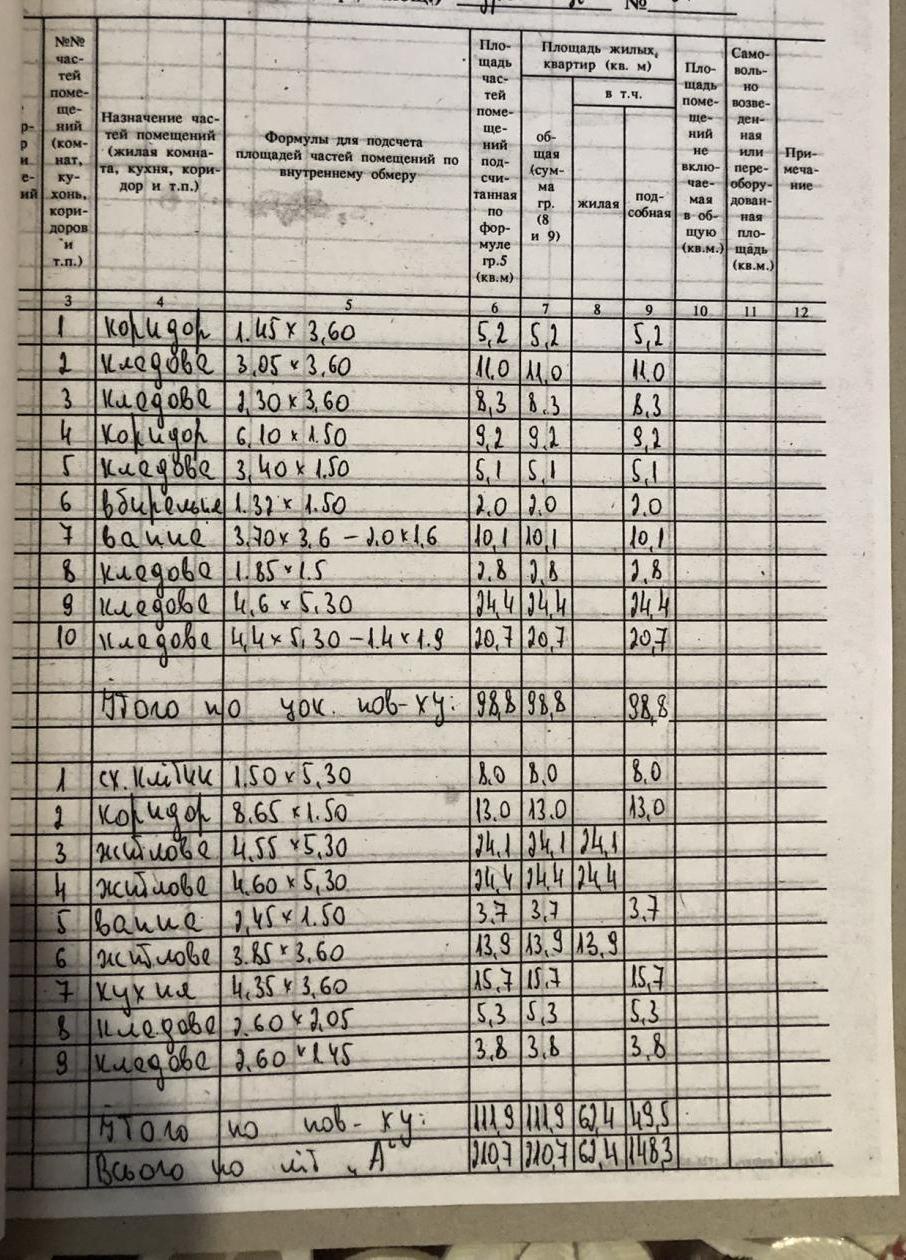 №
№№ час- тей поме- ще- ний (ком- нат, ку- хонь, кори- доров и т.п.)
Назначение час- тей помещений (жилая комна- та, кухня, кори- дор и т.п.)
Формулы для подсчета площадей частей помещений по внутреннему обмеру
Пло- щадь час- тей поме- ще- ний под- счи- танная по фор- муле гр.5 (кв.м)
Площадь жилых, квартир (кв. м)
об- щая (сум- ма гр. (8 и 9)
в т.ч.
жилая
под- собная
Пло- щадь поме- ще- ний не вклю- чае- мая в об- щую (кв.м.)
Само- воль- но возве- ден- ная или пере- обору- дован- ная пло- щадь (кв.м.)
При- меча- ние
3 4 5 6 7 8 9 10 11 12
1 коридор 1.45 x 3,60 5,2 5,2 5,2
2 кладова 3,05 x 3,60 11,0 11,0 11.0
3 кладова 2,30 x 3,60 8,3 8.3 8,3
4 коридор 6,10 x 1.50 9,2 9,2 9,2
5 кладова 3,40 x 1.50 5,1 5,1 5,1
6 вбиральня 1.32 x 1.50 2.0 2.0 2.0
7 ванна 3.70 x 3,6 – 2.0 x 1,6 10,1 10,1 10,1
8 кладова 1.85 x 1.5 2,8 2,8 2,8
9 кладова 4,6 x 5,30 24,4 24,4 24,4
10 кладова 4,4 x 5,30 – 1.4 x 1.9 20,7 20,7 20,7
Итого по цок. пов-ху: 98,8 98,8 98,8
1 сх. клітки 1.50 x 5,30 8.0 8,0 8.0
2 коридор 8.65 x 1.50 13.0 13.0 13,0
3 житлова 4,55 x 5,30 24,1 24,1 24,1
4 житлова 4.60 x 5,30 24,4 24,4 24,4
5 ванна 2,45 x 1.50 3.7 3,7 3,7
6 житлова 3.85 x 3,60 13,9 13,9 13,9
7 кухня 4,35 x 3,60 15,7 15,7 15,7
8 кладова 2.60 x 2,05 5,3 5,3 5,3
9 кладова 2,60 x 1.45 3,8 3,8 3,8
Итого по пов-ху: 111,9 111,9 62,4 49,5
Всього по літ „А" 210,7 210,7 62,4 148,3